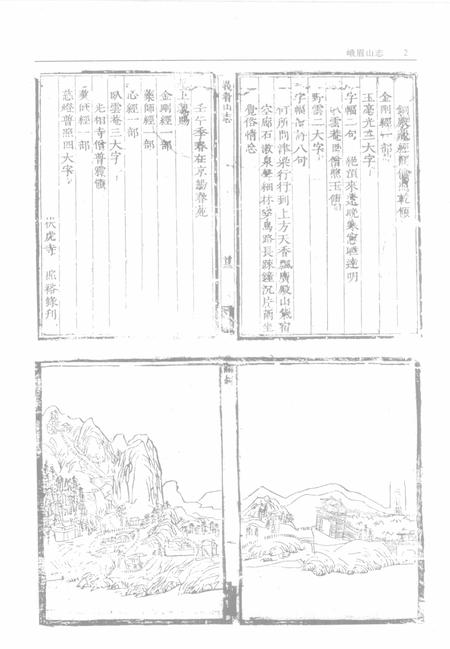 峨眉山志 2
金剛經一部
玉毫光三大字
字幅二句 絕頂來還晚寒窗睡達明
臥雲菴僧照玉領
野雲二大字
字幅古詩八句
何所問津梁行行到上方天香飄廣殿山氣宿
空廊石溜泉聲細林深鳥路長疎鐘沉片雨坐
覺俗情忘
峨眉山志
壬午季春在京暢春苑
上賜
金剛經一部
藥師經一部
心經一部
臥雲菴三大字
光相寺僧普震領
藥師經一部
慈燈普照四大字
伏虎寺 照裕錄刊